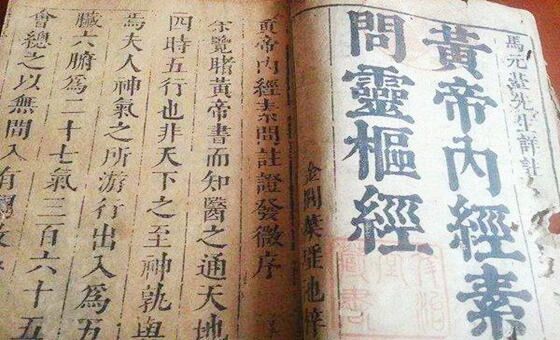 馬元臺先生詳註
黃帝內經素
問靈樞經
金閶葉梓
黃帝內經素問註證發微序
余覽睹黃帝書而知醫之通天地
四時五行也非天下之至神孰與
焉夫人神氣之所游行出入為五
臟六腑為二十七氣三百六十五
會總之以無間入有
圖書